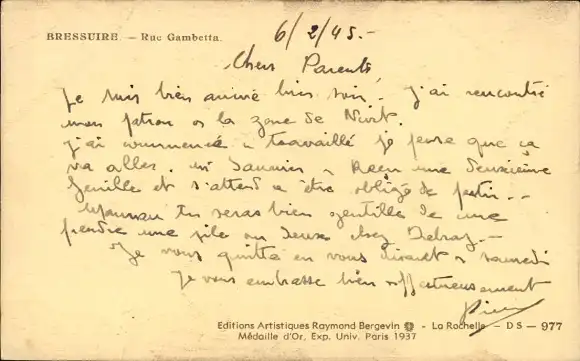 BRESSUIRE. — Rue Gambetta.
6/2/45.-
Chers Parents
Je suis bien arrivé hier soir. J'ai rencontré
mon patron a la gare de Niort.
J'ai commencé a travaillé je pense que ça
va aller. Mr a Reçu une deuxième
feuille et s'attend a être obligé de partir..
Maman tu seras bien gentille de me
prendre une pile ou deux chez
Je vous quitte en vous disant a samedi
Je vous embrasse bien affectueusement
Editions Artistiques Raymond Bergevin - La Rochelle - DS - 977
Médaille d'Or, Exp. Univ. Paris 1937